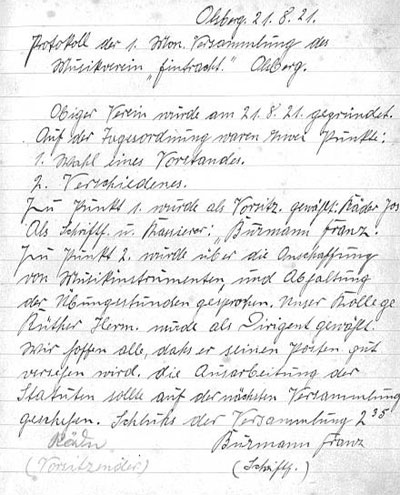 Olsberg. 21. 8. 21.
Protokoll der 1. Mon. Versammlung des
Musikverein „Eintracht." Olsberg.
Obiger Verein wurde am 21. 8. 21. gegründet.
Auf der Tagesordnung waren zwei Punkte:
1. Wahl eines Vorstandes.
2. Verschiedenes.
Zu Punkt 1. wurde als Vorsitz. gewählt: Räder Jos
Als Schriftf. u. Kassierer: „Burmann Franz.
Zu Punkt 2. wurde über die Anschaffung
von Musikinstrumenten, und Abhaltung
der Übungsstunden gesprochen. Unser Kollege
Rüther Herm. wurde als Dirigent gewählt.
Wir hoffen alle, dahs er seinen Posten gut
versehen wird. die Ausarbeitung der
Statuten sollte auf der nächsten Versammlung
geschehen. Schluhs der Versammlung 2 35
Burmann Franz
(Vorsitzender) (Schriftf.)